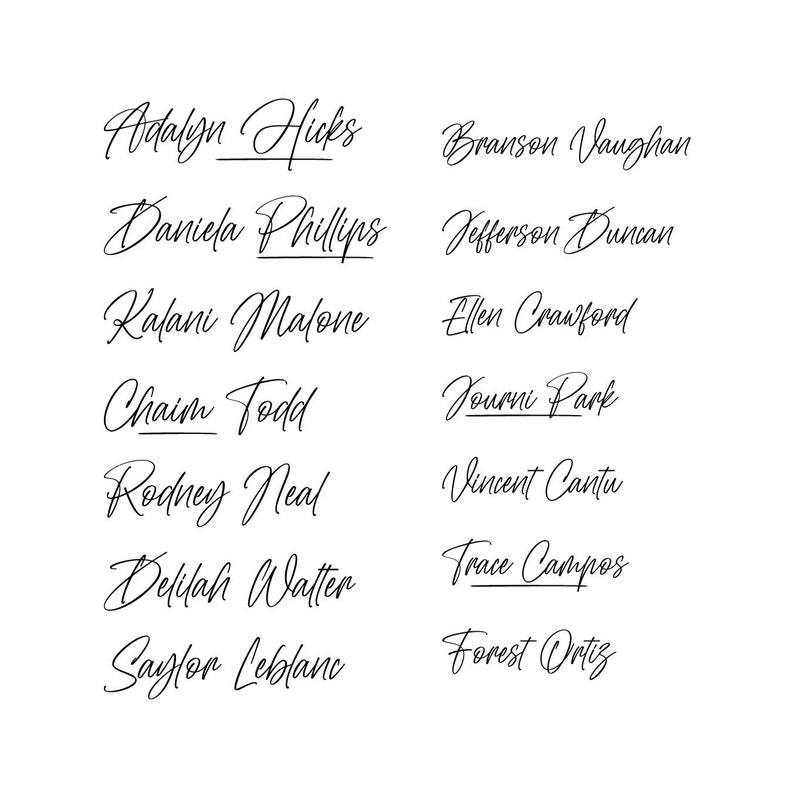 Adalyn Hicks
Daniela Phillips
Kalani Malone
Chaim Todd
Rodney Neal
Delilah Walter
Saylor Leblanc
Branson Vaughan
Jefferson Duncan
Ellen Crawford
Journi Park
Vincent Cantu
Trace Campos
Forest Ortiz